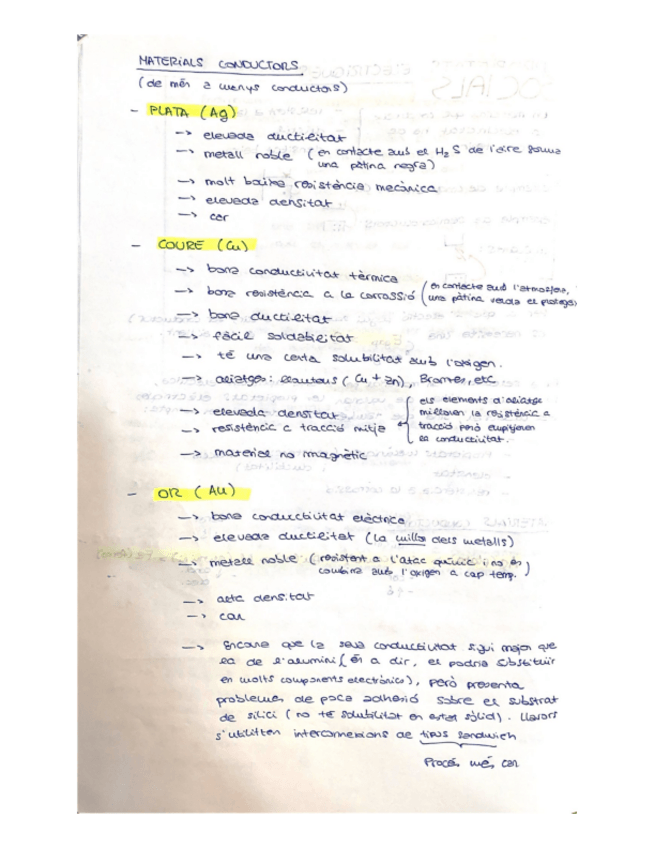 MATERIALS CONDUCTORS
(de més a menys conductors)
- PLATA (Ag)
-> elevada ductilitat
-> metall noble (en contacte amb el H2S de l'aire forma
una pàtina negra)
-> molt baixa resistència mecànica
-> elevada densitat
-> car
- COURE (Cu)
-> bona conductivitat tèrmica
-> bona resistència a la corrossió (en contacte amb l'atmosfera,
una pàtina verda el protegeix)
-> bona ductilitat
-> fàcil soldabilitat
-> té una certa solubilitat amb l'oxigen.
-> aliatges: llautons (Cu + Zn), Bronzes, etc
-> elevada densitat
-> resistència a tracció mitja
{ els elements d'aliatge
milloren la resistència a
tracció però empitjoren
la conductivitat.
-> material no magnètic
- OR (Au)
-> bona conductivitat elèctrica
-> elevada ductilitat (la millor dels metalls)
-> metall noble (resistent a l'atac químic i no es
combina amb l'oxigen a cap temp.)
-> alta densitat
-> car
-> Encara que la seva conductivitat sigui major que
la de l'alumini (és a dir, el podria substituir
en molts components electrònics), però presenta
problemes de poca adhesió sobre el substrat
de silici (no té solubilitat en estat sòlid). Llavors
s'utilitzen interconnexions de tipus sandwich
Procés més car